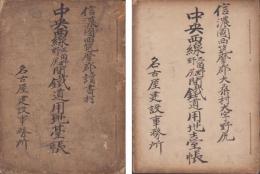 信濃國西筑摩郡讀書村
中央西線間鐵道用地臺帳
名古屋建設事務所
信濃國西筑摩郡大桑村大字野尻
中央西線間鐵道用地臺帳
名古屋建設事務所